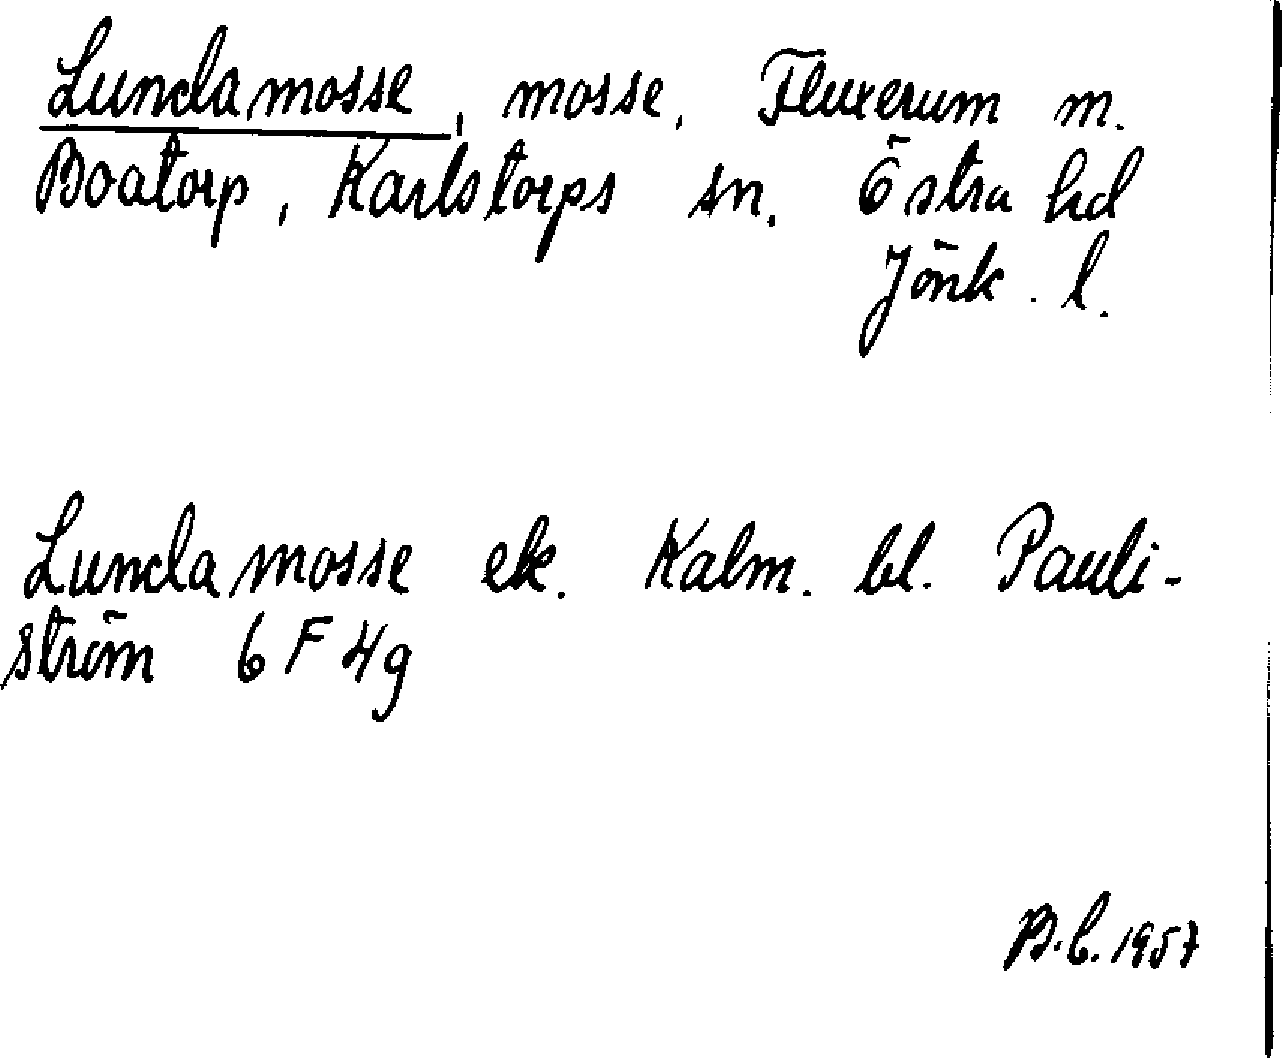 Lundamosse, mosse, Fluxerum m.
Boatorp, Karlstorps sn. Östra hd
Jönk. l.
Lundamosse ek. Kalm. bl. Pauli-
ström 6 F 4g
B.L. 1957